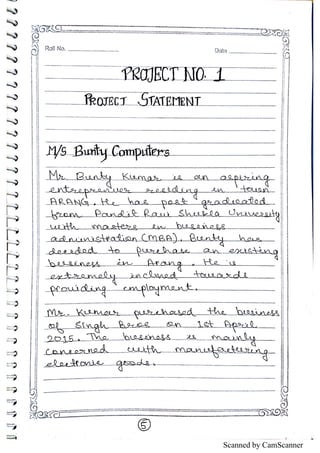 Roll No.
Date
PROJECT NO. 1
PROJECT STATEMENT
M/S Bunty Computers
Mr. Bunty Kumar is an aspiring
entrepreneur residing in town
ARANG. He has post graduated
from Pandit Ravi Shukla University
with masters in business
administration (MBA). Bunty has
decided to purchase an existing
business in Arang. He is
extremely inclined towards
providing employment.
Mr. Kumar purchased the business
of Singh Bros on 1st April
2015. The business is mainly
concerned with manufacturing
electronic goods.
5
Scanned by CamScanner